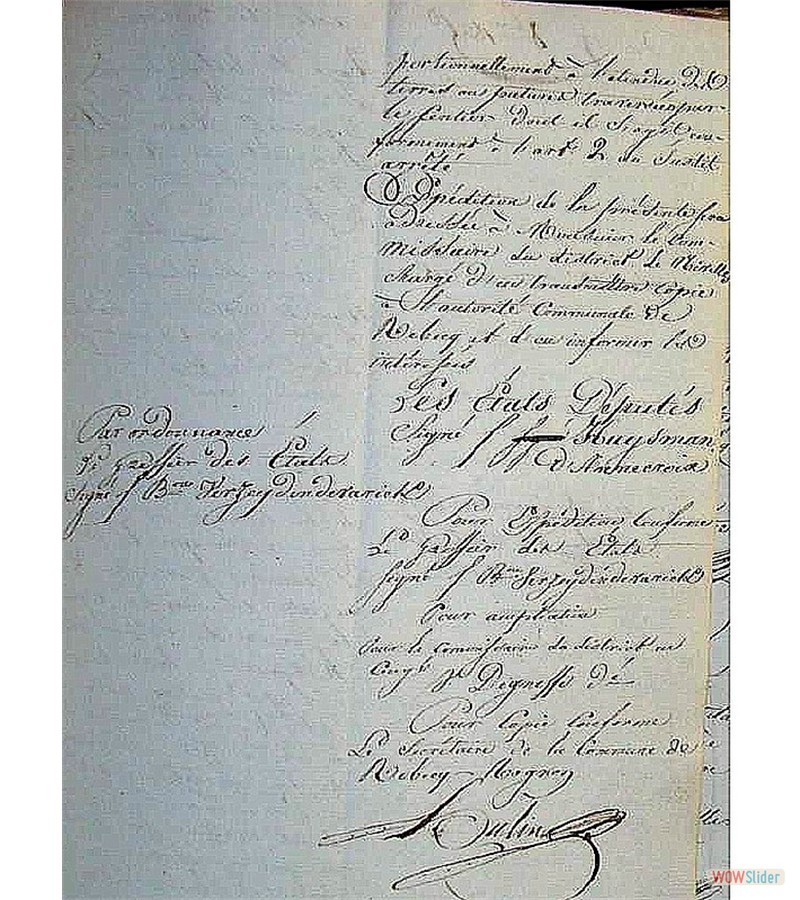 portionnellement à l'étendue des
terres ou patures traversées par
le sentier dont il s'agit con-
formement à l'art 2 du susdit
arrêté
Expédition de la présente sera
adressée à Monsieur le Com-
missaire du district de Nivelles
chargé d'en transmettre copie
à l'autorité Communale de
Rebecq et d'en informer les
intéressés
Les États Députés
Signé Huysman
d'Annecroix
Par ordonnance
Le greffier des États
signé Bon
Pour Expédition Conforme
Le greffier des États
signé Bon
Pour ampliation
Pour le commissaire du district en
Congé
Dé
Pour Copie Conforme
Le Secrétaire de la Commune de
Rebecq-Rognon
WOWSlider